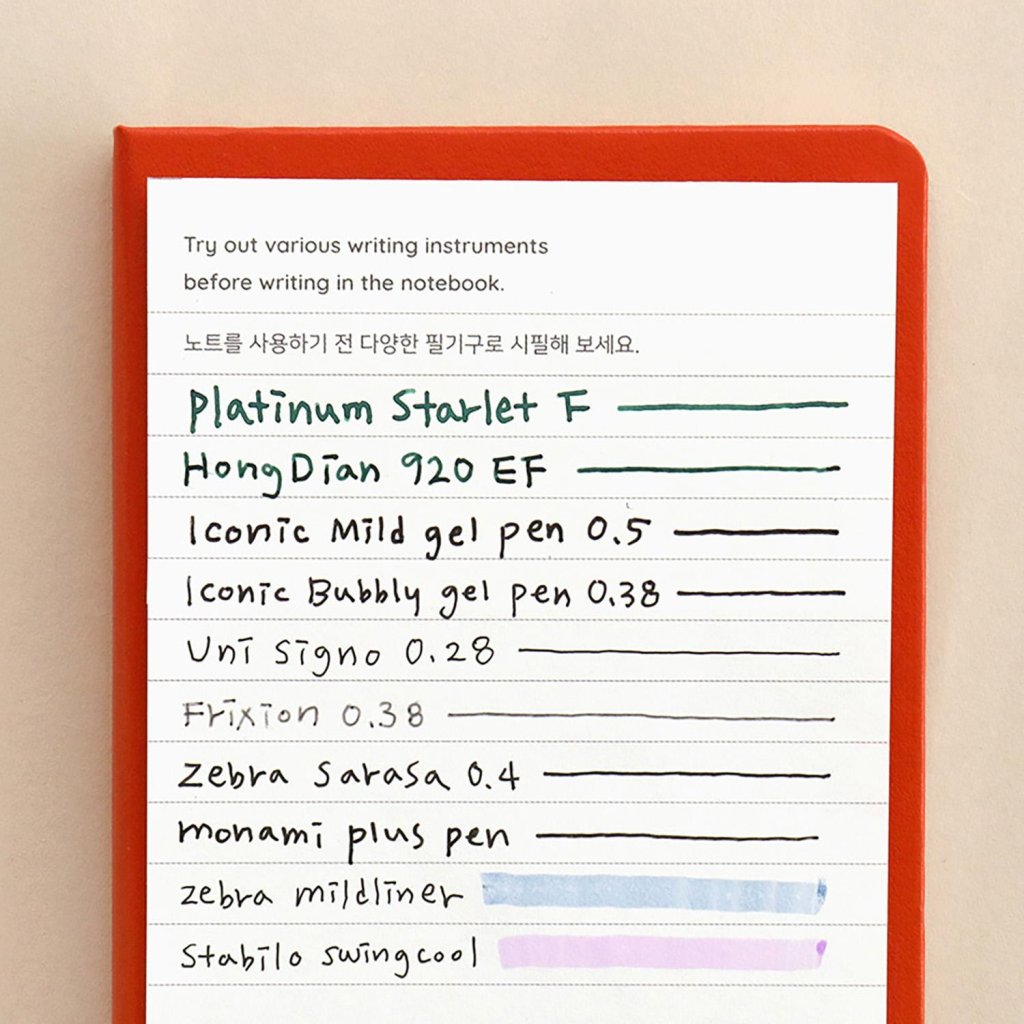 Try out various writing instruments
before writing in the notebook.
노트를 사용하기 전 다양한 필기구로 시필해 보세요.
Platinum Starlet F
HongDian 920 EF
Iconic Mild gel pen 0.5
Iconic Bubbly gel pen 0.38
Uni Signo 0.28
Frixion 0.38
Zebra Sarasa 0.4
monami plus pen
zebra mildliner
Stabilo swingcool